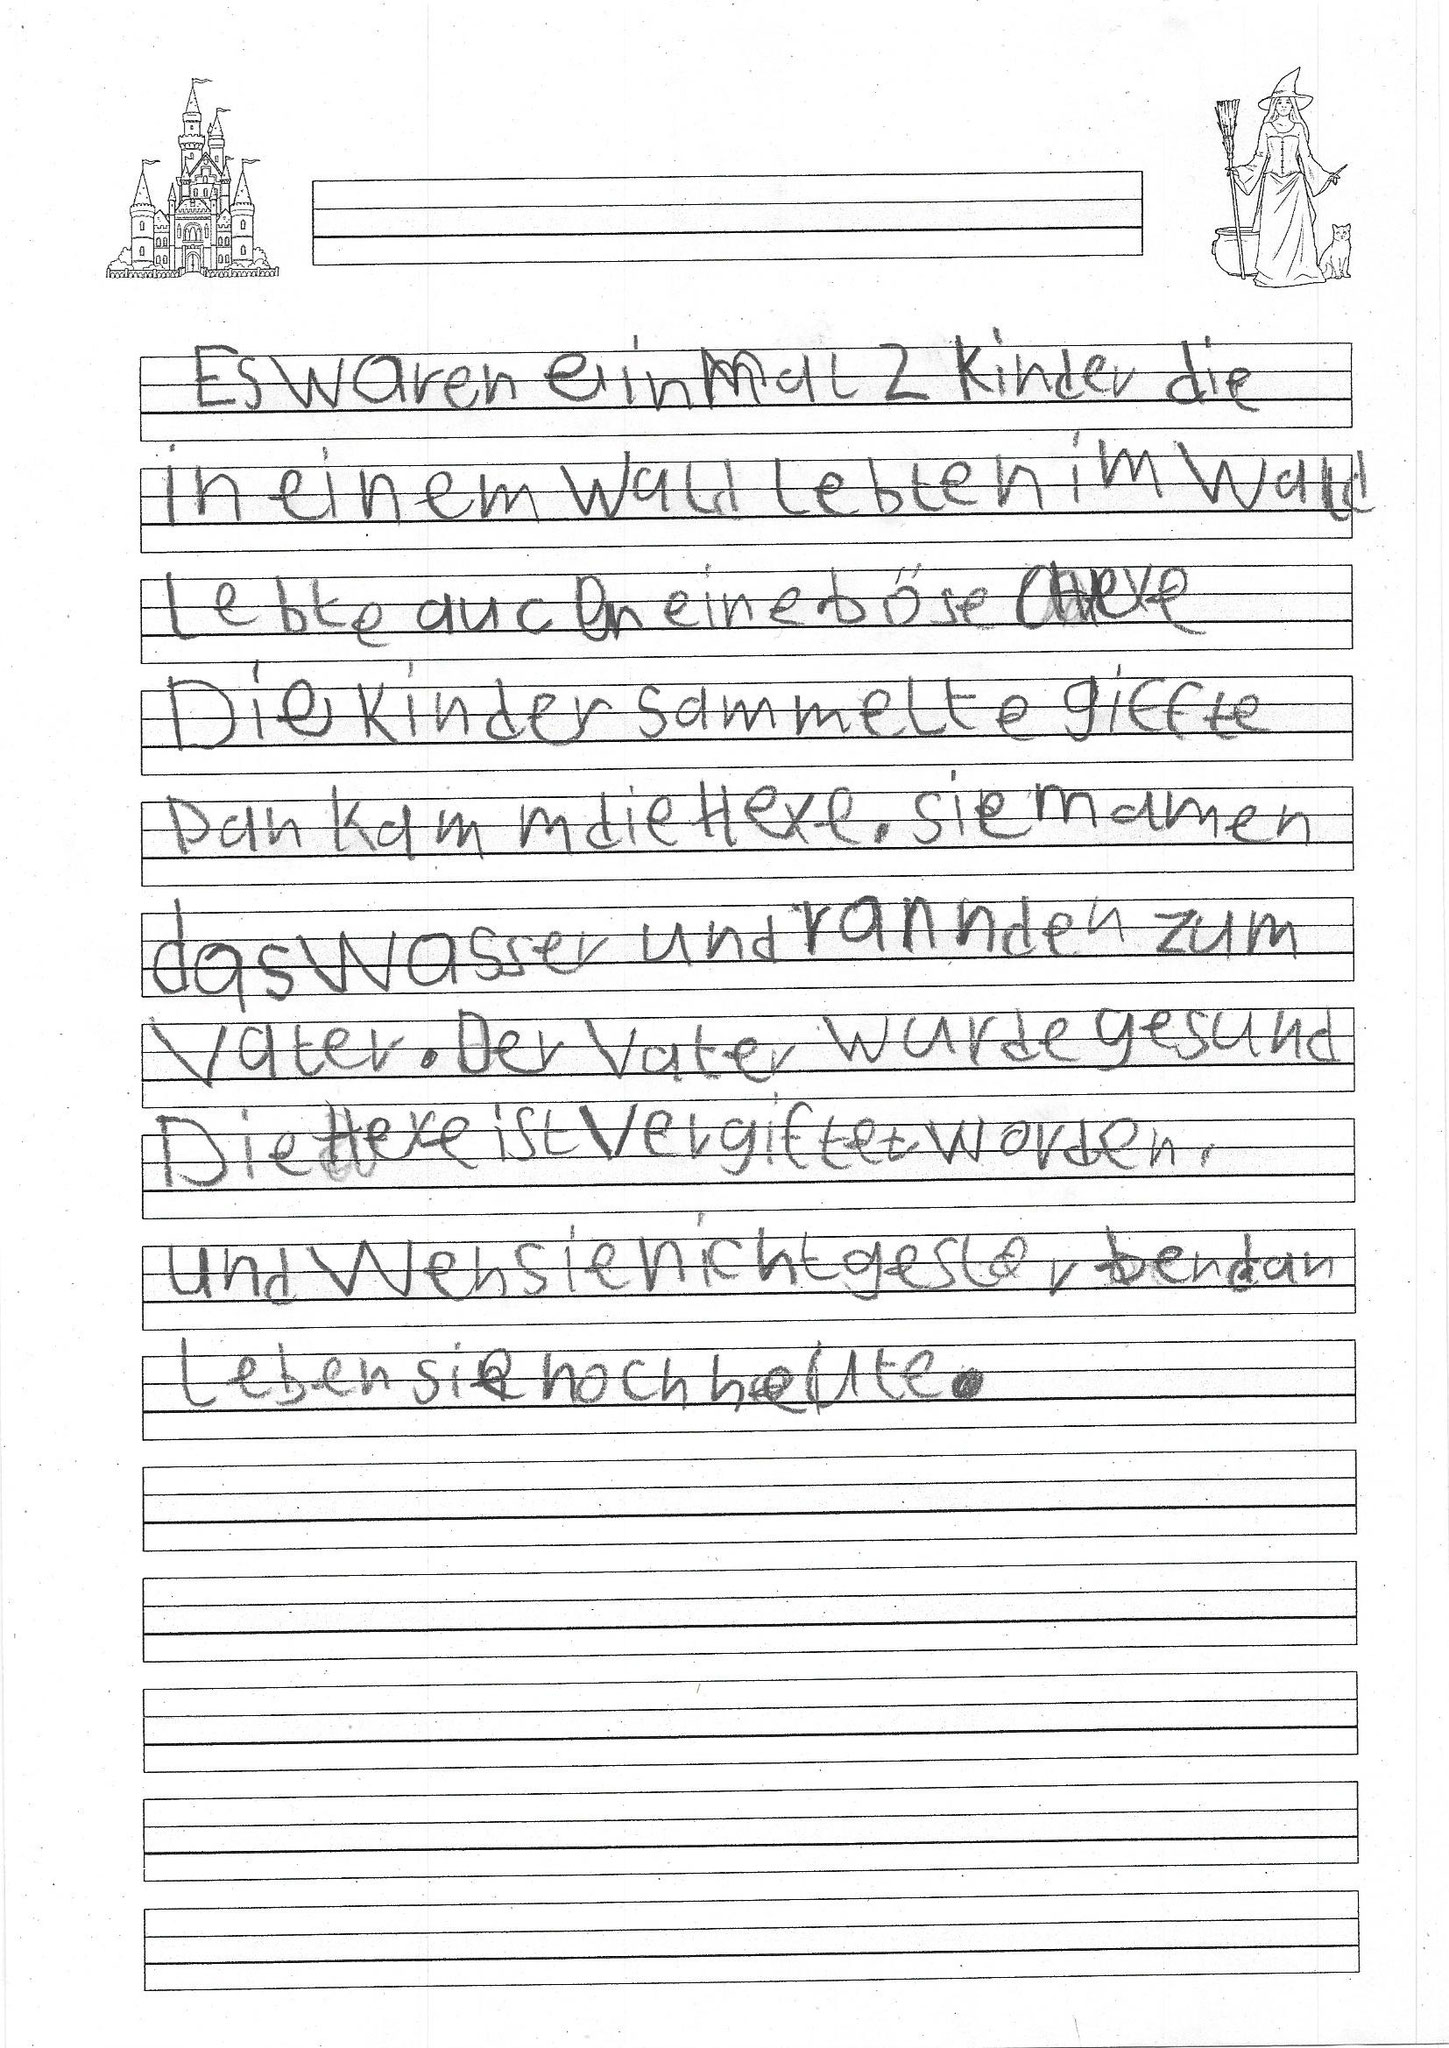 Es waren einmal 2 Kinder die
in einem Wald lebten im Wald
lebte auch eine böse Hexe
Die Kinder sammelte giffte
Dan kam m die Hexe. sie mamen
das Wasser und rannden zum
Vater. Der Vater wurde gesund
Die Hexe ist Vergiftet worden.
und Wen sie nicht gestorben dan
leben sie noch heute.